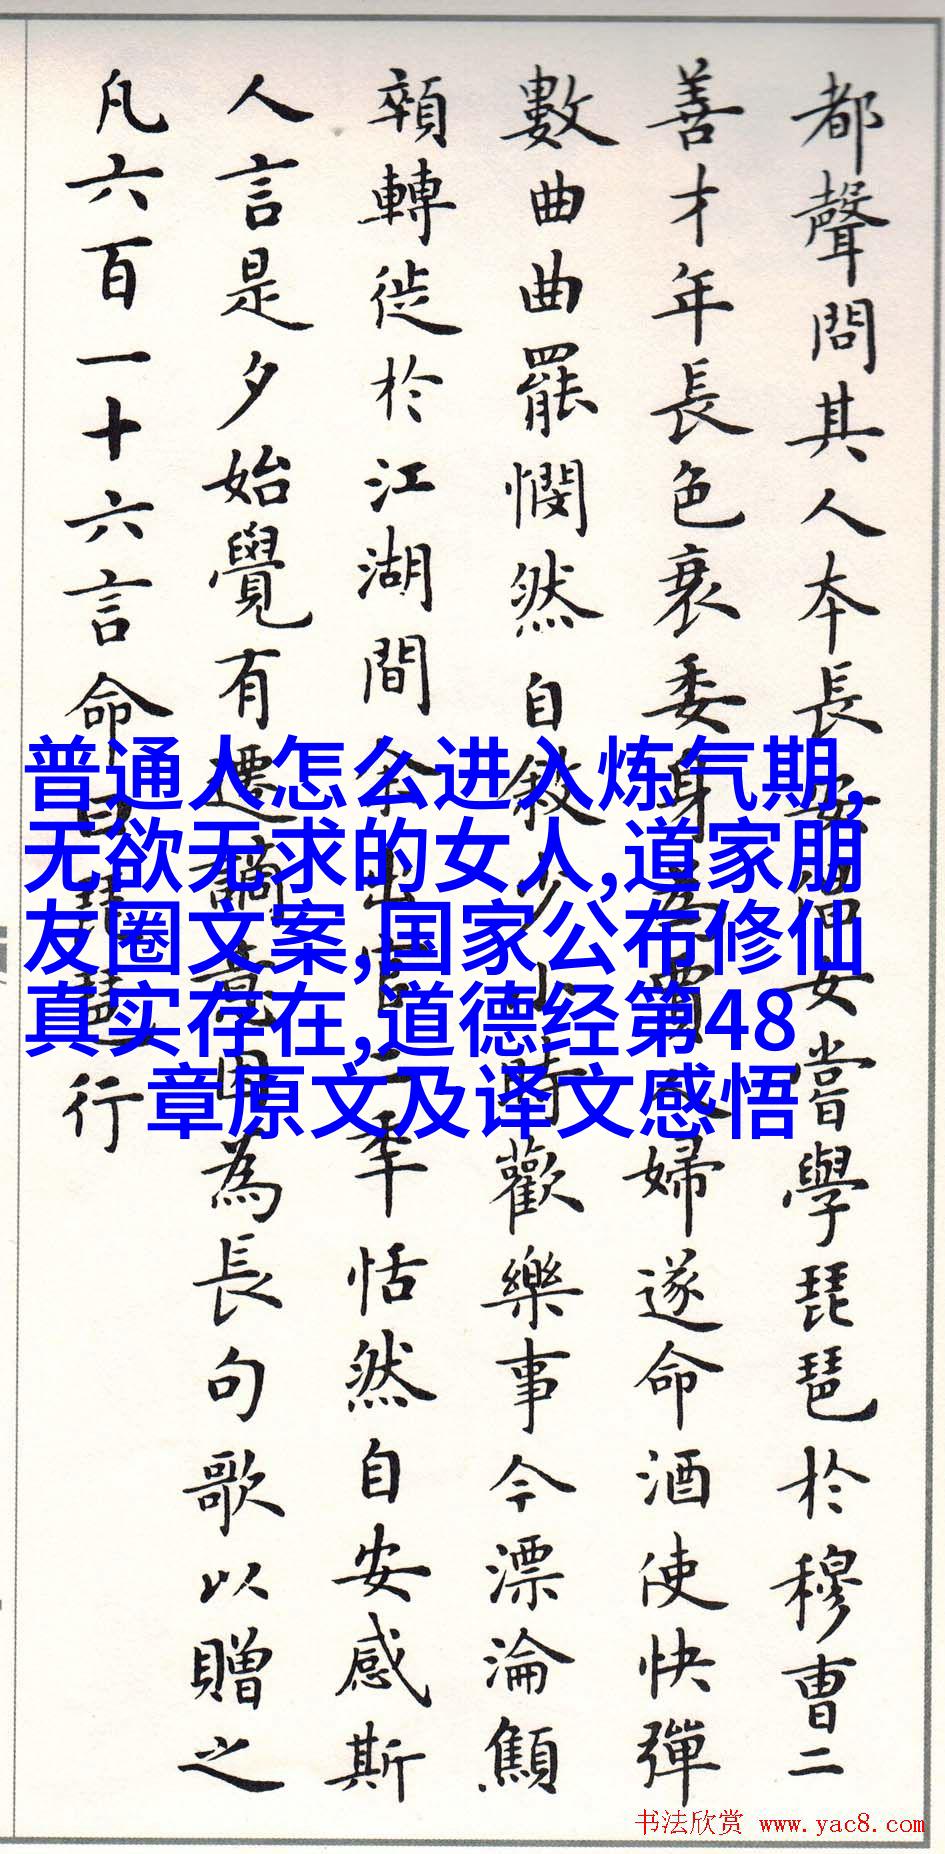 都聲問其人本長安倡女嘗學琵琶於穆曹二
善才年長色衰委身為賈人婦遂命酒使快彈
數曲曲罷憫然自敘少小時歡樂事今漂淪顦
顇轉徙於江湖間余出官二年恬然自安感斯
人言是夕始覺有遷謫意因為長句歌以贈之
凡六百一十六言命曰琵琶行
普通人怎么进入炼气期,
无欲无求的女人,道家朋
友圈文案,国家公布修仙
真实存在,道德经第48
章原文及译文感悟
书法欣赏 www.yac8.com